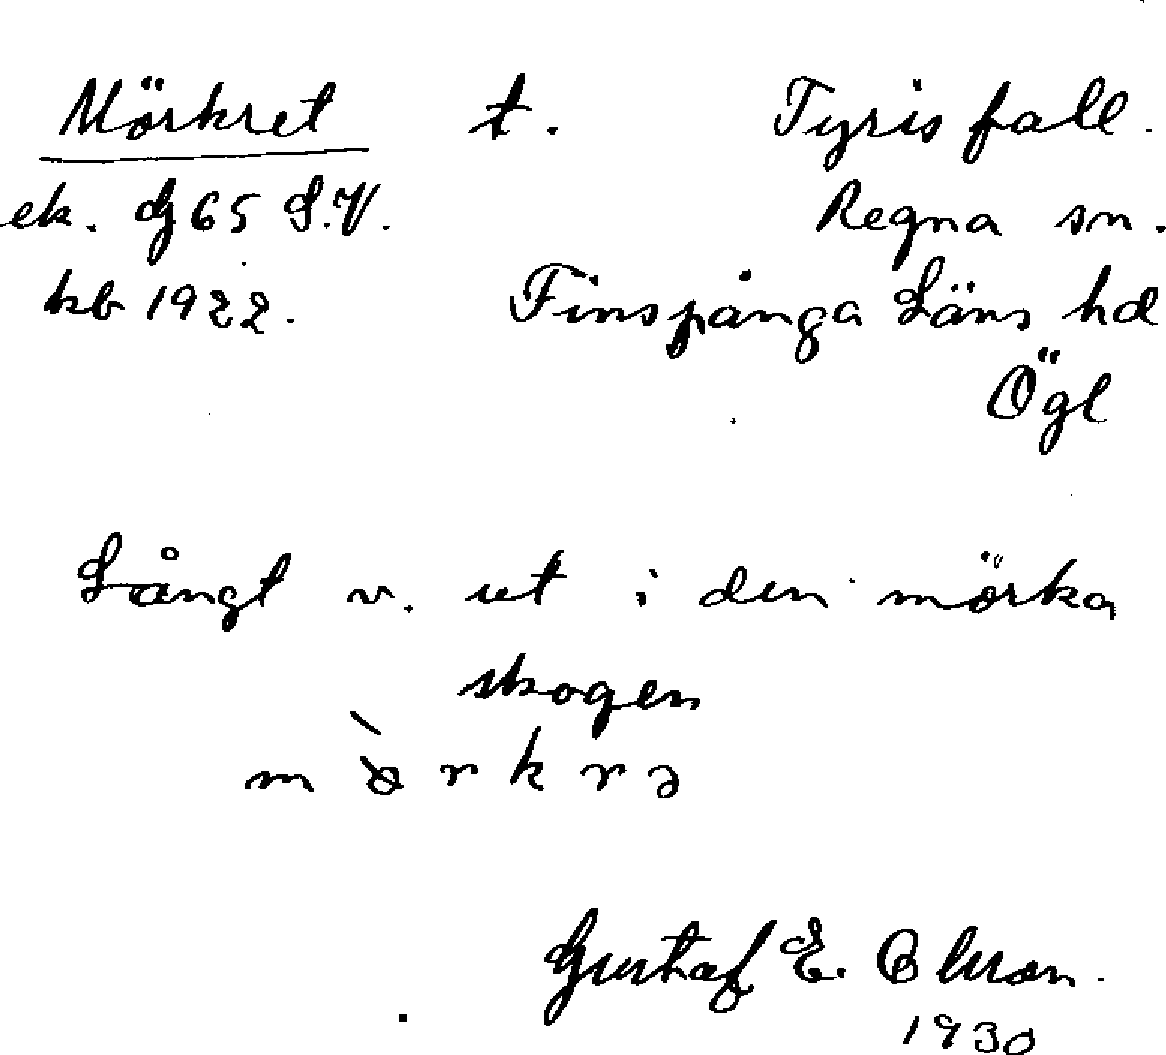 Mörkret t. Tyrisfall.
ek. dj 65 S.V. Regna sn.
kb 1922. Finspånga Läns hd
Ögl
Långt v. ut i den mörka
skogen
m ö̀ r k r ə
Gustaf E. Olsson.
1930